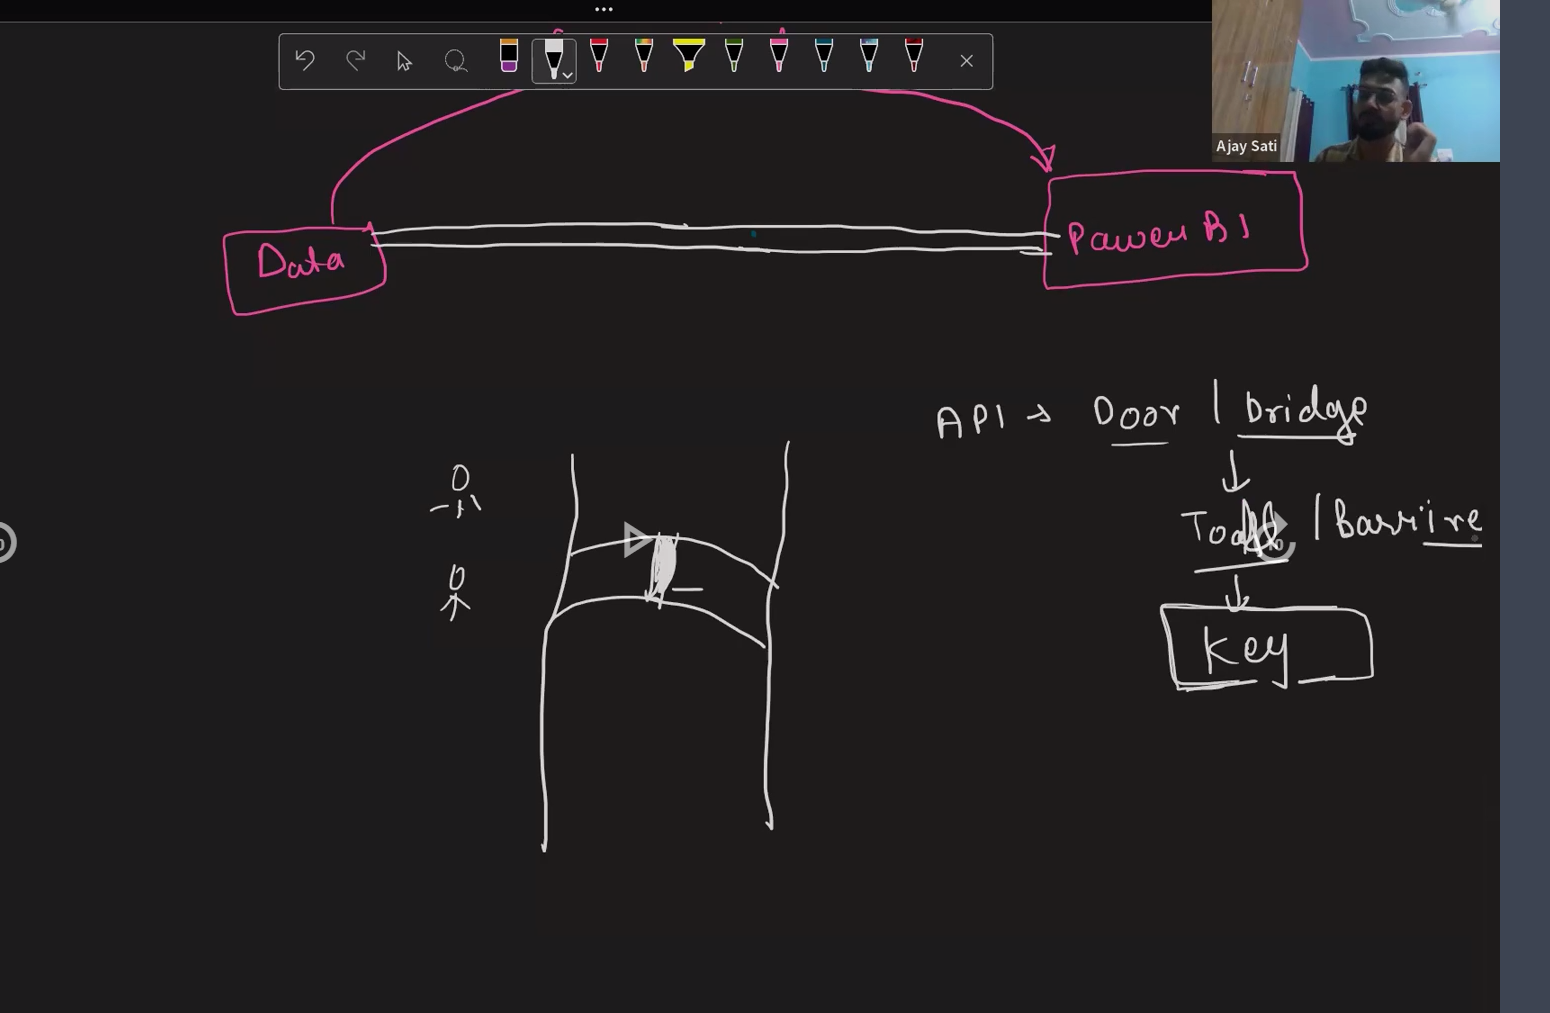 Ajay Sati
Data
Power BI
API → Door | bridge
Toll | Barrire
Key